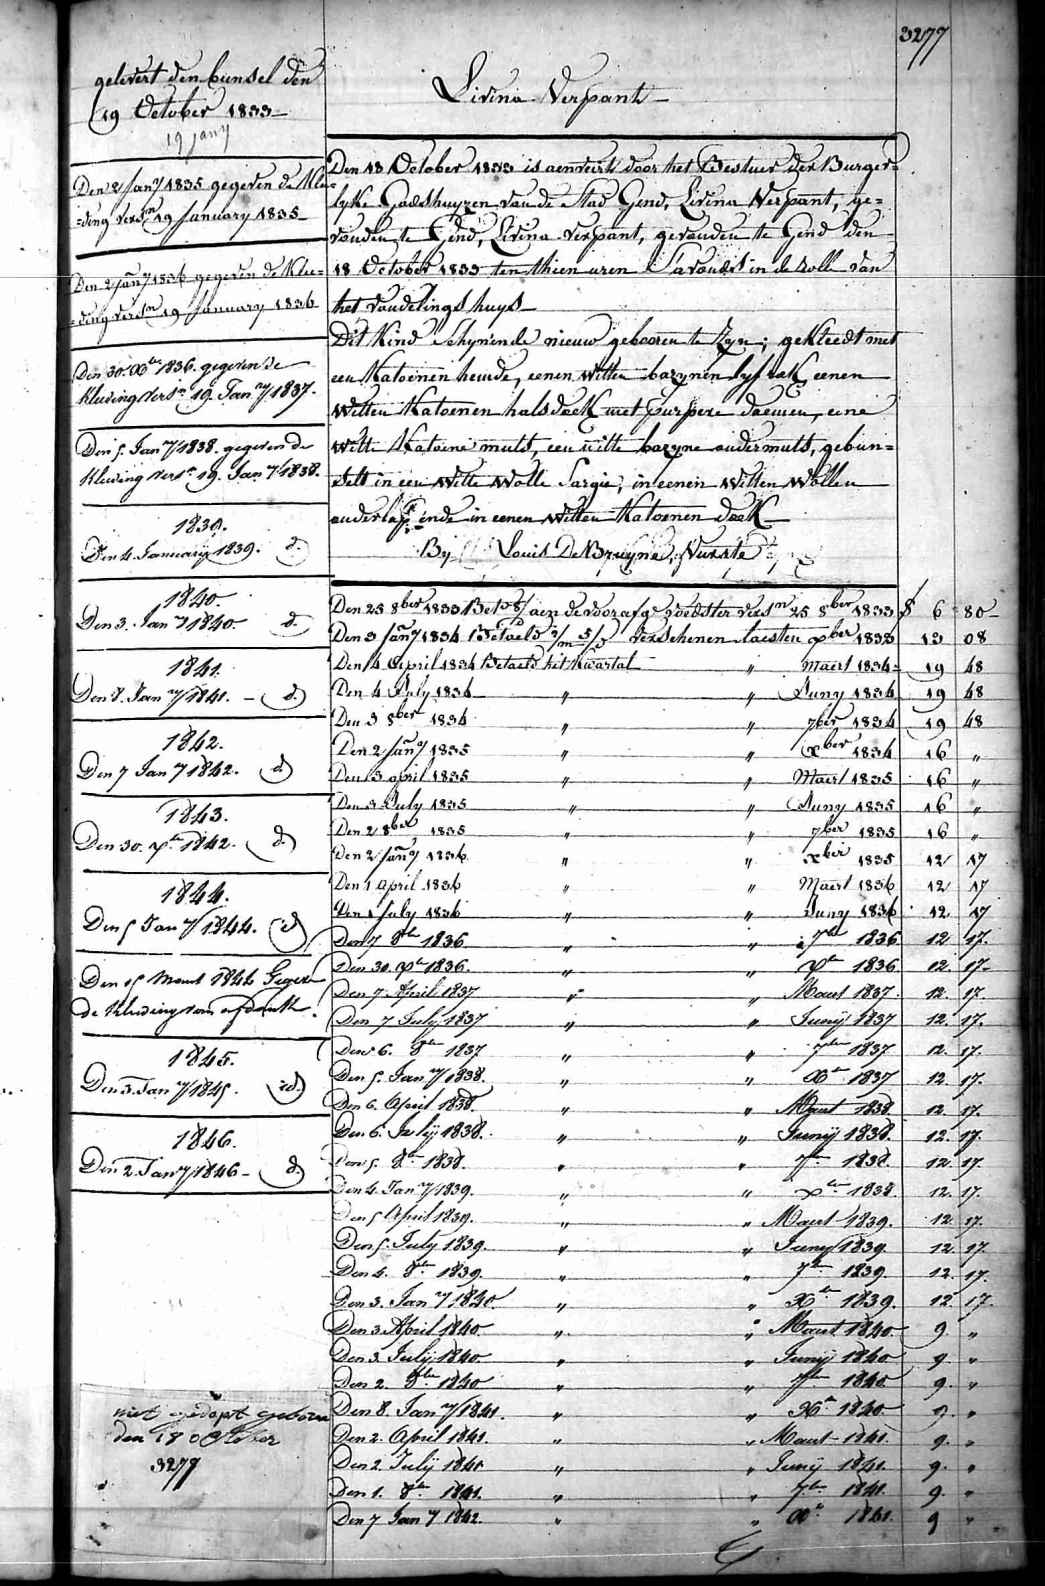 3277
gelevert den bunsel den
19 October 1833
19 jany
Den 2 Jany 1835 gegeven de Klee-
=ding versn 19 January 1835
Den 2 Jany 1836 gegeven de Klee=
=ding versn 19 January 1836
Den 30. Xber 1836. gegeven de
kleeding versn 19. Jany 1837.
Den 5. Jany 1838. gegeven de
kleeding versn 19. Jany 1838.
1839.
Den 4. January 1839. d.
1840.
Den 3. Jany 1840 d.
1841.
Den 8. Jany 1841. - d.
1842.
Den 7 Jany 1842. d
1843.
Den 30. Xber 1842. d.
1844.
Den 5 Jany 1844. d
Den 15 Maart 1844 Gegeven
de kleeding van
1845.
Den 3. Jany 1845. d.
1846.
Den 2. Jany 1846 - d.
niet gedopt geboren
den 18 October
3277
Livina Verpant
Den 13 October 1833 is aenveirt door het Bestuer der Burger=
lyke Godshuyzen van de Stad Gend, Livina Verpant, ge=
vonden te Gend, Livina Verpant, gevonden te Gend den
18 October 1833 ten thien uren s'avonds in de rolle van
het vondelings huys
Dit Kind Schynende nieuw gebooren te Zyn; gekleedt met
een Katoenen hemde, eenen witten bazynen lyfrok eenen
witten Katoenen halsdoek met purpere bloemen, eene
witte Katoene muts, een witte bazyne ondermuts, gebun=
delt in een witte wolle Sargie, in eenen witten wollen
onderlap ende in eenen witten Katoenen doek
By Louis DeBruyne,
Den 25 8ber 1833 Bet aen de voorafge voedster versn 25 8ber 1833 6 80
Den 3 Jany 1834 Betaelt verschenen laesten xber 1833 13 08
Den 4 April 1834 Betaelt het kwartal " Maert 1834 19 48
Den 4 July 1834 " " Juny 1834 19 48
Den 3 8ber 1834 " " 7ber 1834 19 48
Den 2 Jany 1835 " " xber 1834 16 "
Den 3 april 1835 " " Maert 1835 16 "
Den 3 July 1835 " " Juny 1835 16 "
Den 2 8ber 1835 " " 7ber 1835 16 "
Den 2 Jany 1836 " " xber 1835 12 17
Den 1 April 1836 " " Maert 1836 12 17
Den 1 July 1836 " " Juny 1836 12 17
Den 7 8ber 1836 " " 7ber 1836 12 17.
Den 30. Xber 1836. " " Xber 1836 12. 17-
Den 7 April 1837 " " Maert 1837. 12. 17.
Den 7 July 1837 " " Junij 1837 12. 17.
Den 6. 8ber 1837 " " 7ber 1837 12. 17.
Den 5. Jany 1838. " " Xber 1837 12. 17.
Den 6. April 1838. " " Maert 1838. 12. 17.
Den 6. Julij 1838. " " Junij 1838. 12. 17.
Den 5. 8ber 1838. " " 7ber 1838. 12. 17
Den 4. Jany 1839. " " xber 1838. 12. 17.
Den 5 April 1839. " " Maert 1839. 12. 17.
Den 5. July 1839. " " Juny 1839 12. 17.
Den 4. 8ber 1839. " " 7ber 1839 12. 17.
Den 3. Jany 1840. " " Xber 1839. 12. 17.
Den 3 April 1840. " " Maert 1840. 9. "
Den 3. Julij 1840. " " Junij 1840 9. "
Den 2. 8ber 1840 " " 7ber 1840 9. "
Den 8. Jany 1841. " " Xber 1840 9. "
Den 2. April 1841. " " Maert 1841. 9. "
Den 2. Julij 1841 " " Junij 1841. 9. "
Den 1. 8ber 1841. " " 7ber 1841. 9. "
Den 7 Jany 1842. " " Xber 1841. 9 "